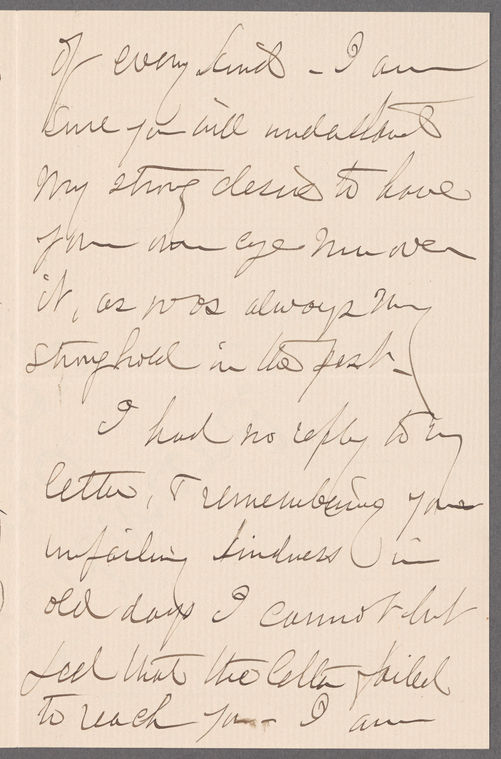 of every kind - I am
sure you will understand
my strong desire to have
your own eye run over
it, as was always my
stronghold in the past -
I had no reply to my
letter, & remembering your
unfailing kindness in
old days I cannot but
feel that the letter failed
to reach you - I am